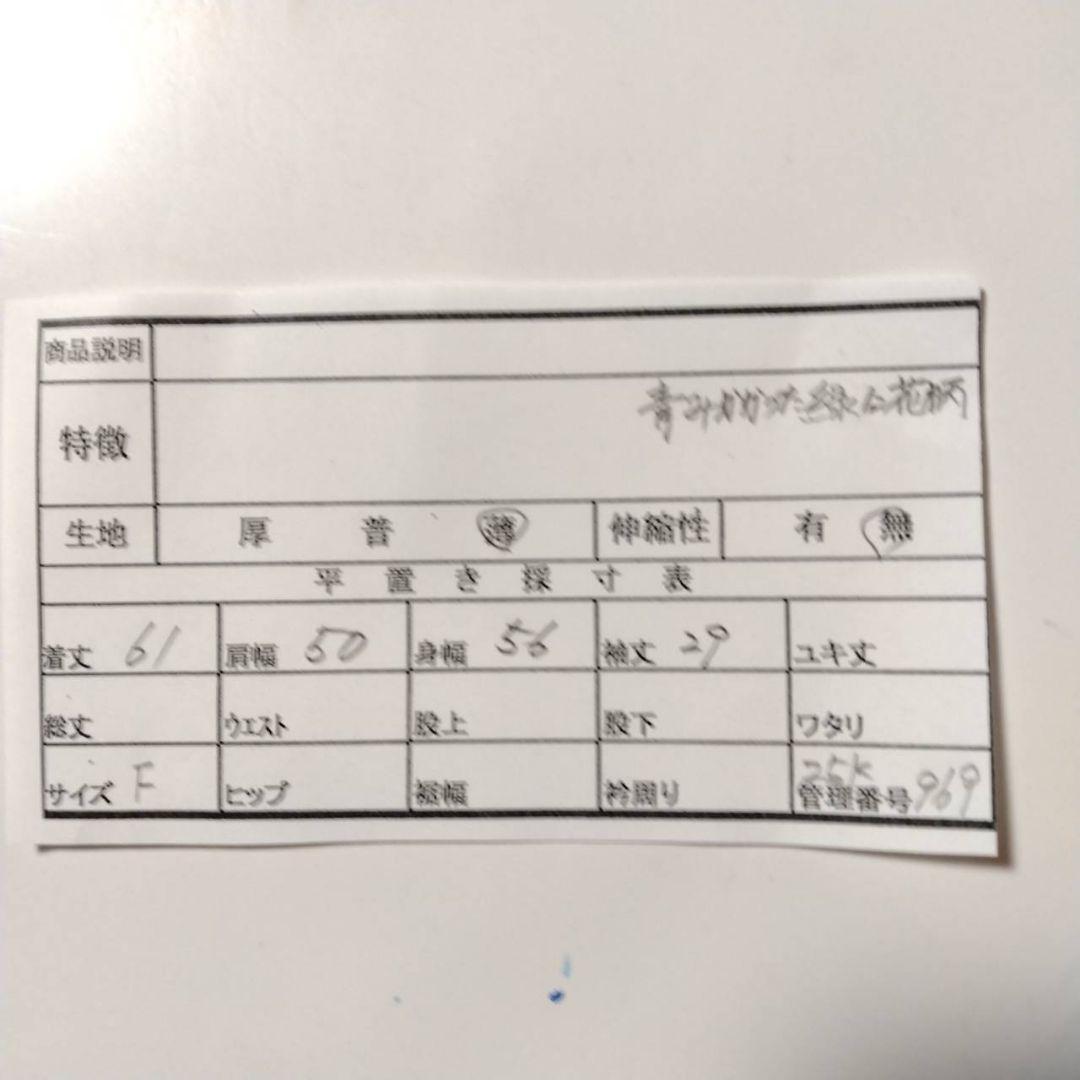 商品説明
特徴 青みがかった緑に花柄
生地 厚 普 薄 伸縮性 有 無
平置き採寸表
着丈 61 肩幅 50 身幅 56 袖丈 29 ユキ丈
総丈 ウエスト 股上 股下 ワタリ
サイズ F ヒップ 裾幅 衿周り 管理番号 25K 969